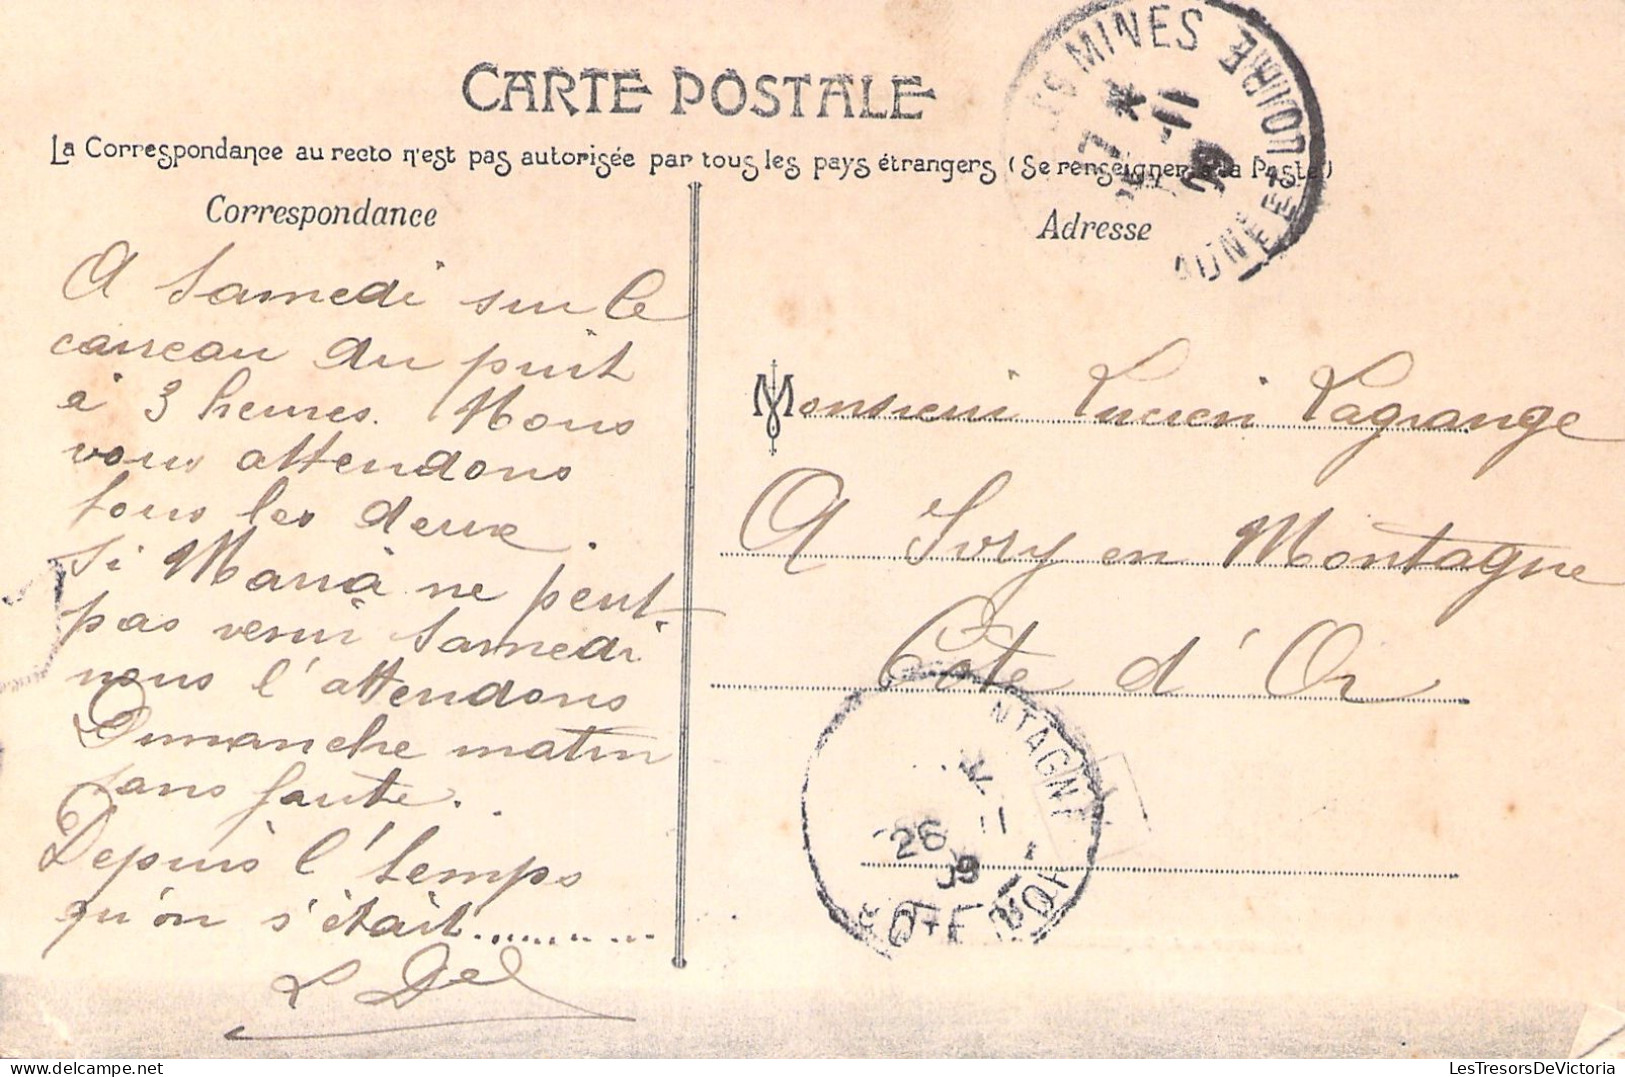 CARTE POSTALE
La Correspondance au recto n'est pas autorisée par tous les pays étrangers (Se renseigner à la Poste)
Correspondance
A Samedi sur le
carreau du puit
à 3 heures. Nous
vous attendons
tous les deux.
Si Maria ne peut
pas venir Samedi
nous l'attendons
Dimanche matin
sans faute.
Depuis l'temps
qu'on s'était..........
L Del
Adresse
Monsieur Lucien Lagrange
A Ivry en Montagne
Côte d'Or
LES MINES
7
11
09
SAONE ET LOIRE
NTAGNE
26 11
09
COTE D'OR
LesTresorsDeVictoria